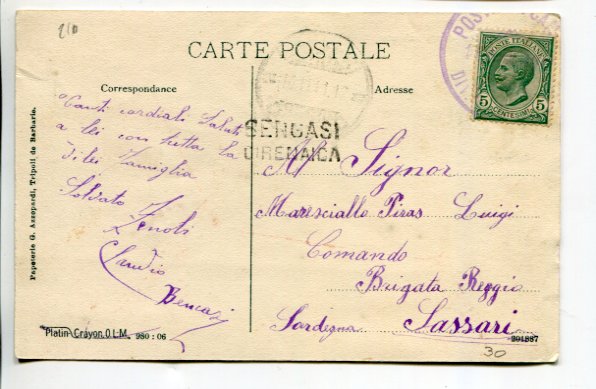 210
CARTE POSTALE
Correspondance
Adresse
POSTE ITALIANE
5 5
CENTESIMI
BENGASI
CIRENAICA
Tanti cordiali Saluti
a lei con tutta la
di lei Famiglia
Soldato Zenobi
Claudio
Al Signor
Maresciallo Piras Luigi
Comando
Brigata Reggio
Sardegna Sassari
Papeterie G. Azzopardi, Tripoli de Barbarie.
Platin-Crayon.O.L.M. 980 : 06
291887
30